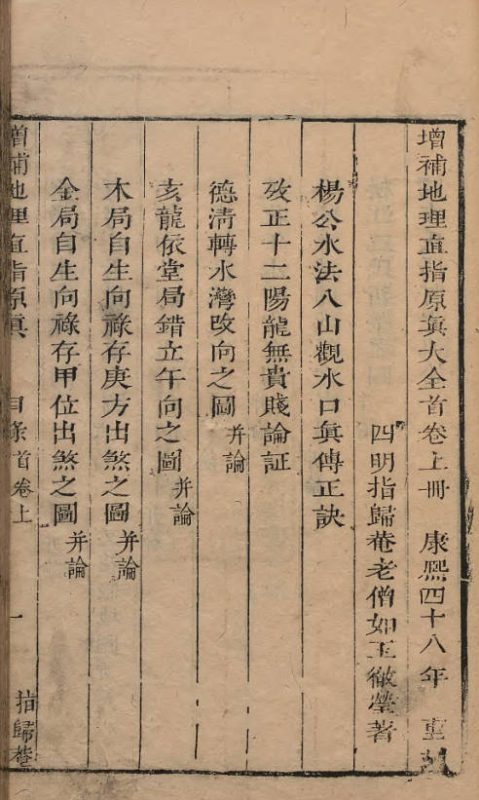 增補地理直指原眞大全首卷上冊 康熙四十八年 重
四明指歸菴老僧如玉徹瑩著
楊公水法八山觀水口眞傳正訣
攷正十二陽龍無貴賤論証
德清轉水灣改向之圖 并論
亥龍依堂局錯立午向之圖 并論
木局自生向祿存庚方出煞之圖 并論
金局自生向祿存甲位出煞之圖 并論
增補地理直指原眞 目条首卷上 一 指歸菴